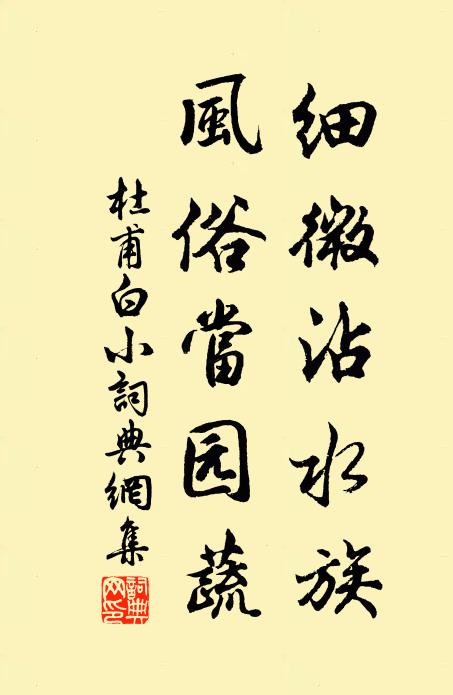 细微沾水族
風俗當园蔬
杜甫白小詞典網集
詞典网印